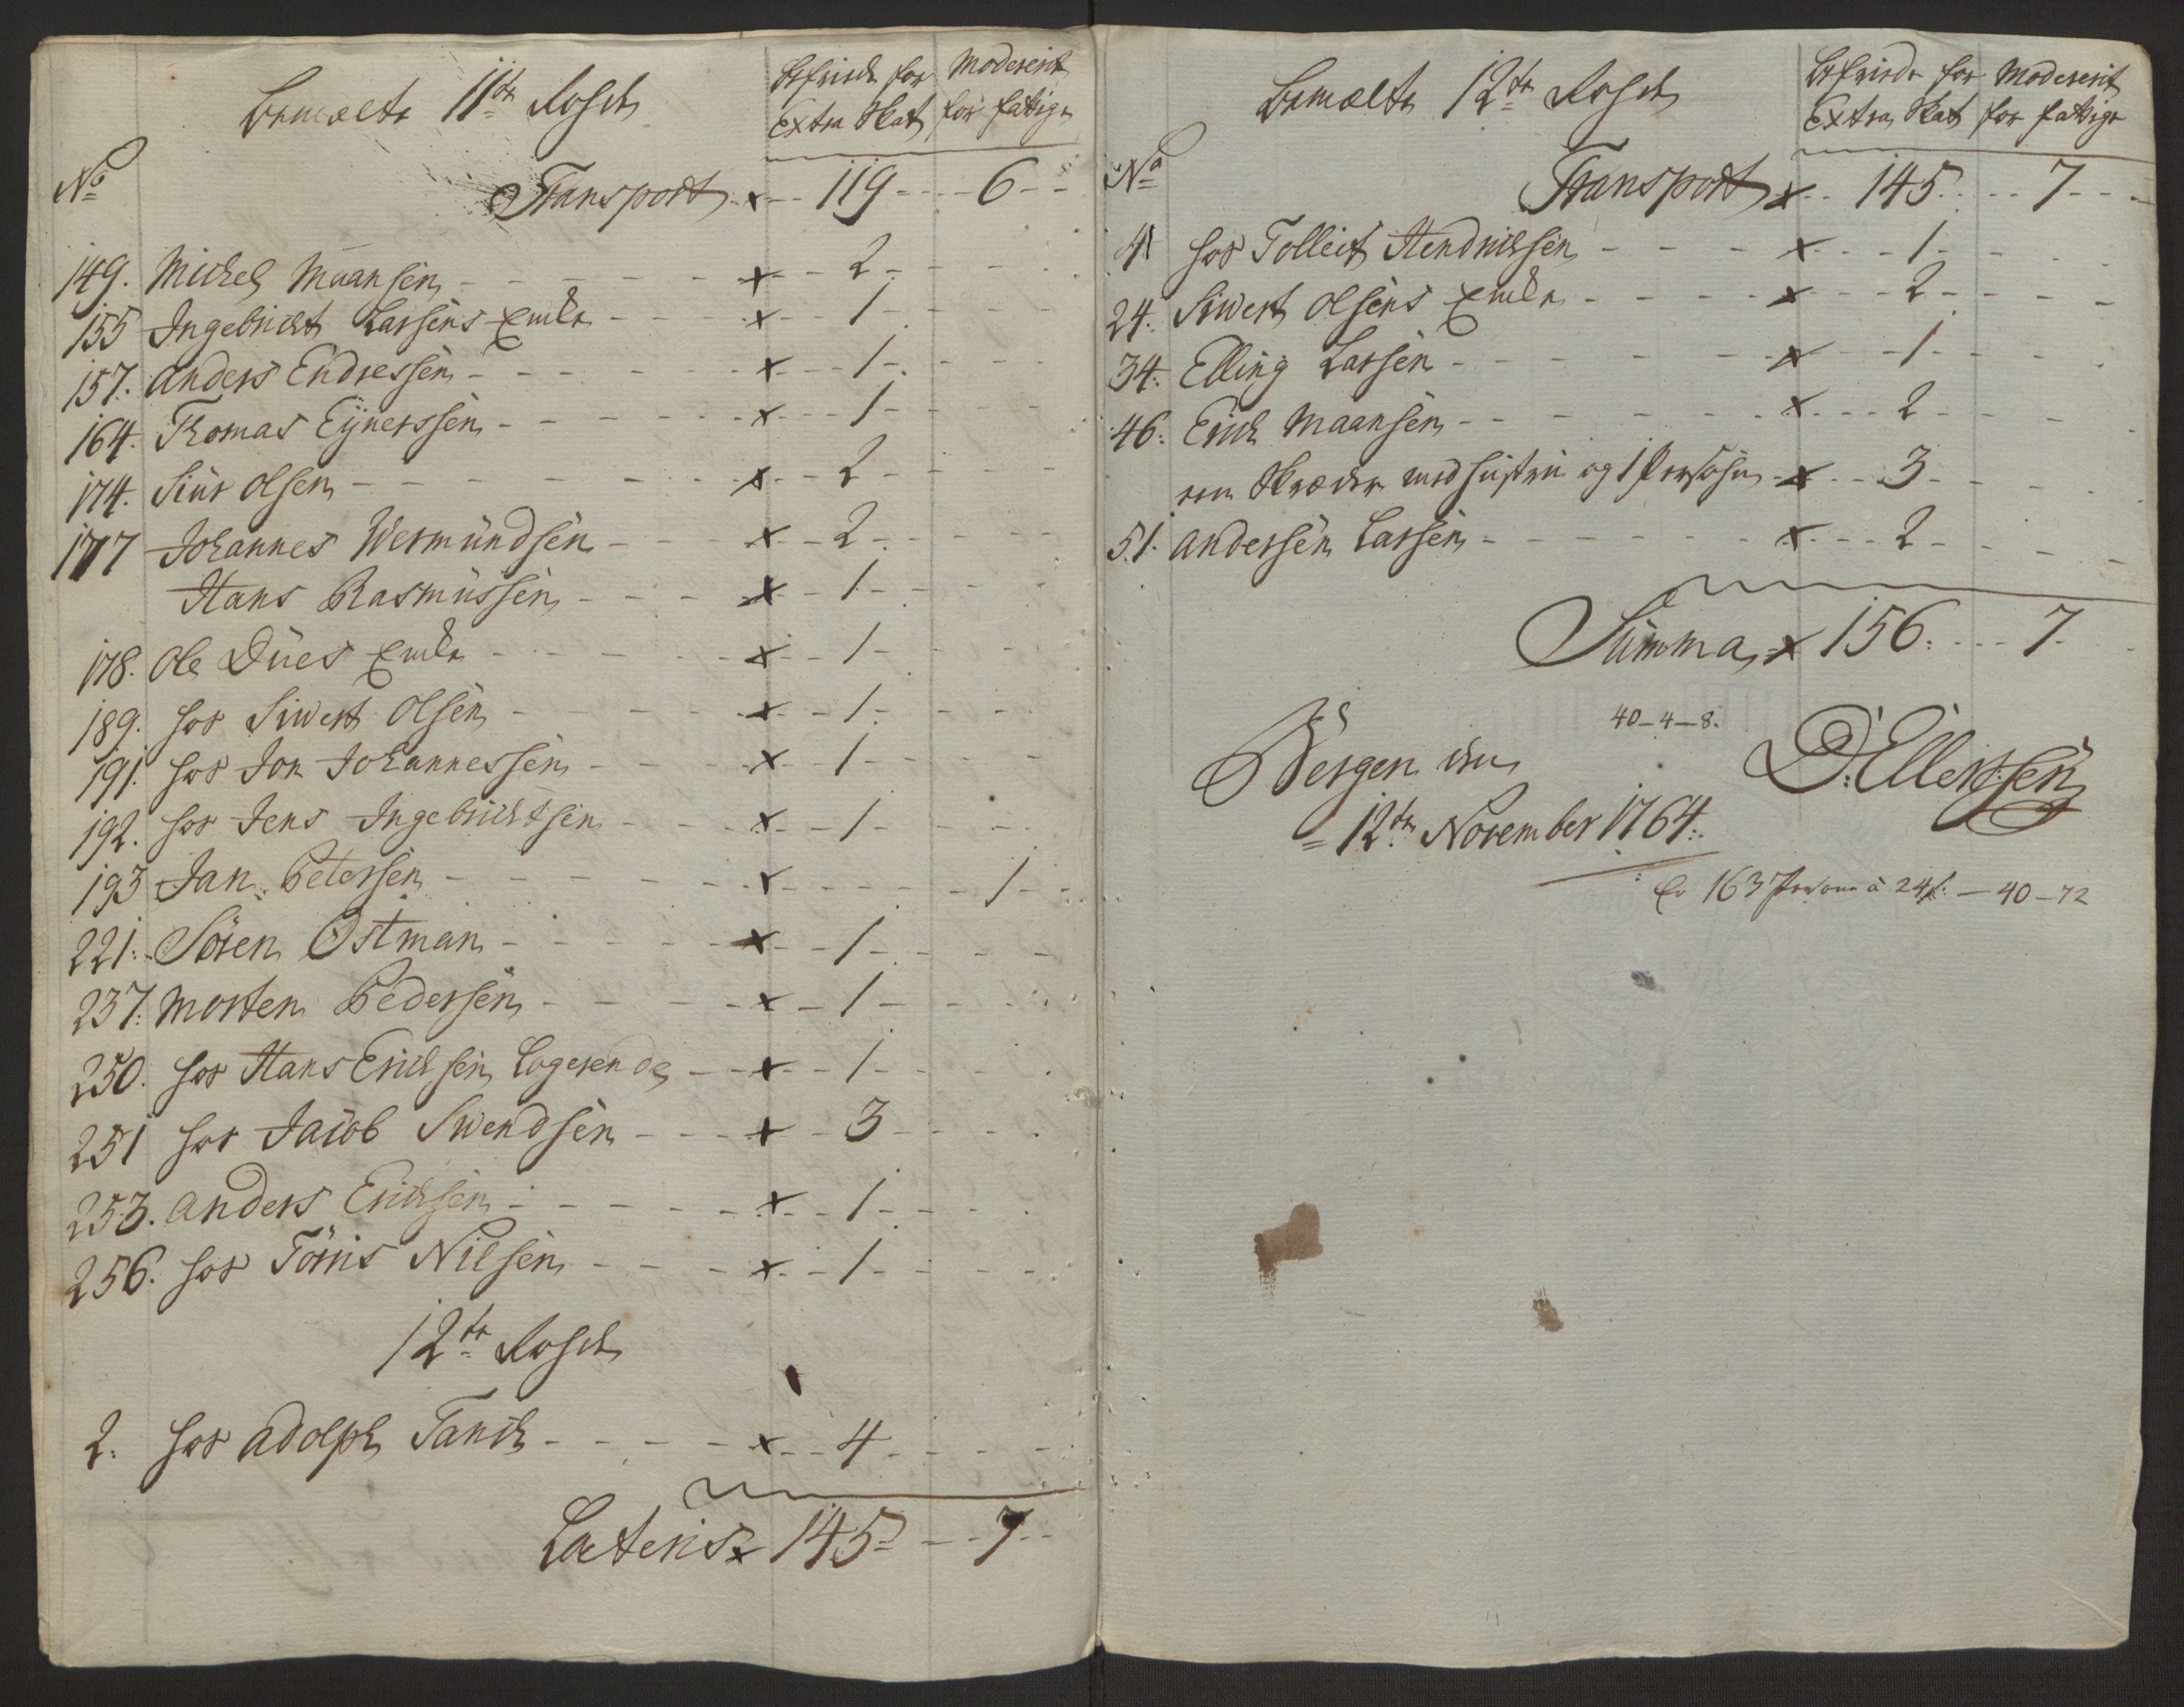 Bemælte 11te Rohde
Befriede for Extra Skat
Moderert for fattige
No
Transport x 119 - 6
149. Michel Maansen x 2
155 Ingebricht Larsens Encke x 1
157. Anders Endressen x 1
164. Thomas Eynerssen x 1
174. Siur Olsen x 2
177 Johannes Wermundsen x 2
Hans Rasmussen x 1
178. Ole Dues Encke x 1
189. hos Siwert Olsen x 1
191. hos Jon Johannessen x 1
192. hos Jens Ingebrichtsen x 1
193 Jan Petersen x 1
221. Sören Östman x 1
237. Morten Pedersen x 1
250. hos Hans Erichsen Logerende x 1
251 hos Jacob Swendsen x 3
253. Anders Erichsen x 1
256. hos Törris Nilsen x 1
12te Rohde
2. hos Adolph Tanck x 4
Lateris x 145 - 7
Bemælte 12te Rohde
Befriede for Extra Skat
Moderert for fattige
No
Transport x 145 - 7
4 hos Tolleif Hendrichsen x 1
24. Siwert Olsens Encke x 2
34. Elling Larsen x 1
46. Erich Maansen x 2
een Skræder med hustru og 1 Persohn x 3
51. Andersen Larsen x 2
Summa x 156 - 7
40-4-8.
Bergen den
D: Ellerssen
12te November 1764.
163 Persone à 24 s: - 40-72